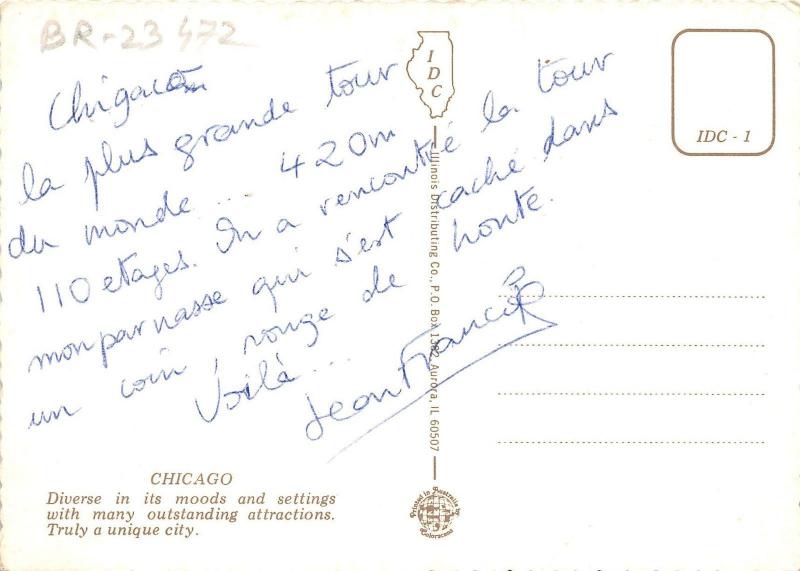 BR-23 472
Chigaco
la plus grande tour
du monde... 420m
110 etages. On a rencontré la tour
monparnasse qui s'est caché dans
un coin, rouge de honte.
Voilà...
Jean Francis
IDC
IDC - 1
Illinois Distributing Co., P.O. Box 1382, Aurora, IL 60507
CHICAGO
Diverse in its moods and settings
with many outstanding attractions.
Truly a unique city.
Printed in Australia by
Colorscans